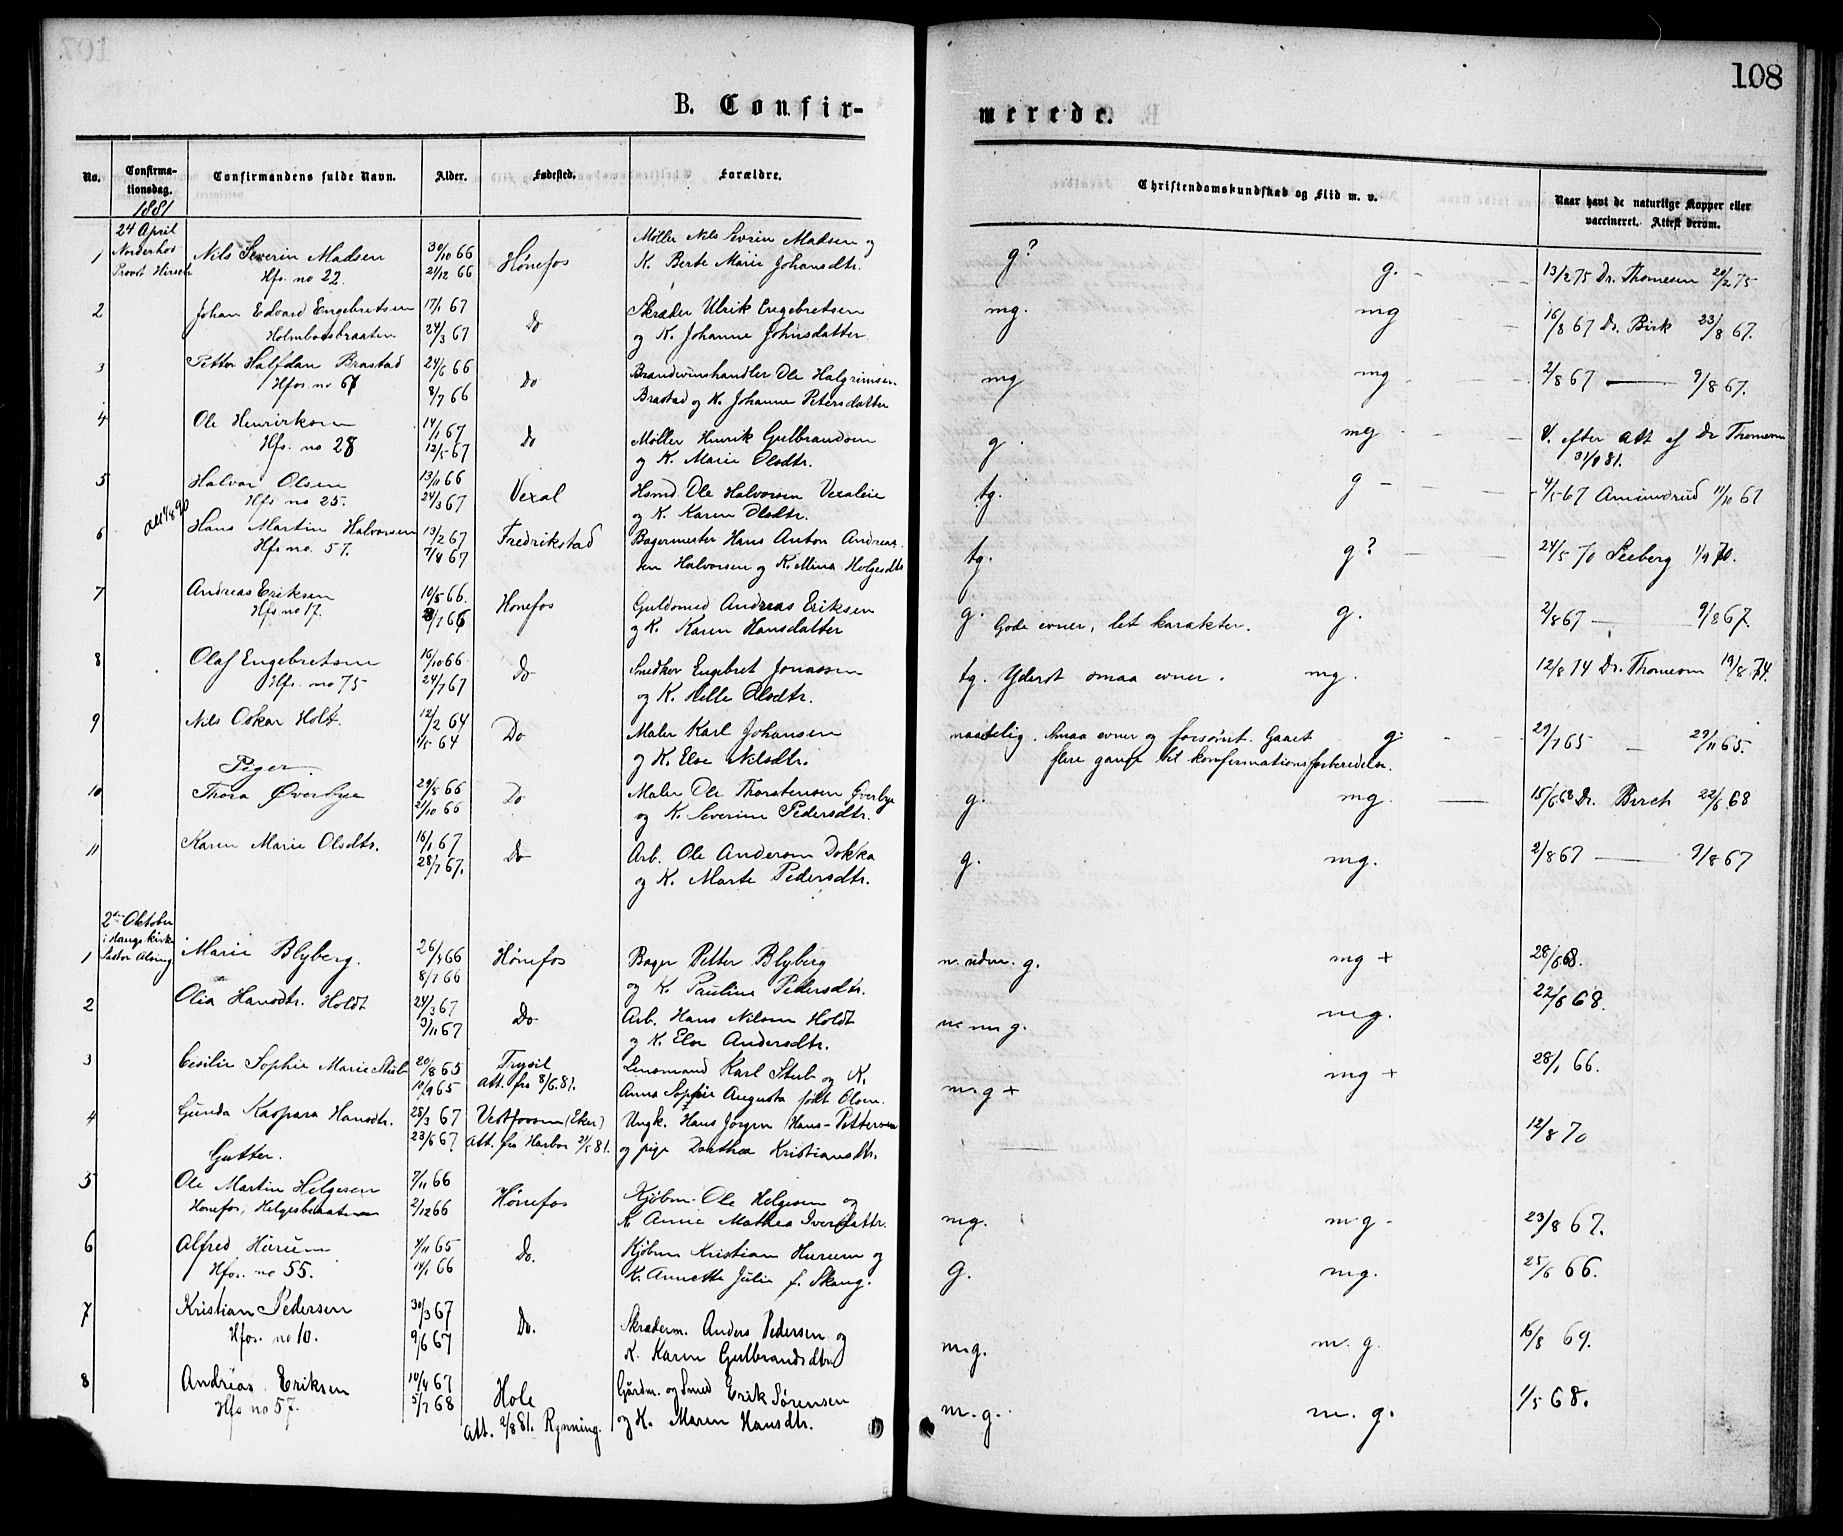 108
B. Confir-
merede.
No.
Confirma-
tionsdag.
Confirmandens fulde Navn.
Alder.
Fødested.
Forældre.
Christendomskundskab og Flid m. v.
Naar havt de naturlige Kopper eller
vaccineret. Attest derom.
1881
24 April
Norderhov
Provst Hirsch
1 Nils Severin Madsen 30/10 66 Hønefos Møller Nils Sevrin Madsen og g? g. 13/2 75 Dr. Thomesen 20/2 75
Hfs. no 22. 21/12 66 K. Berte Marie Johansdtr.
2 Johan Edvard Engebretsen 17/1 67 Do Skræder Ulrik Engebretsen mg. mg 16/8 67 Dr. Birk 23/8 67.
Holmboesbraaten 24/3 67 og K. Johanne Johnsdatter
3 Petter Halfdan Brastad 24/6 66 Do Brændevinshandler Ole Halgrimsen mg mg 2/8 67 — 9/8 67.
Hfos. no 67 8/7 66 Brastad og K. Johanne Petersdatter
4 Ole Henriksen 14/1 67 Do Møller Henrik Gulbrandsen g mg V. efter Att af Dr Thomesen
Hfs. no 28 12/5 67 og K. Marie Olsdtr. 31/8 81.
5 Halvor Olsen 13/11 66 Vexal Hsmd. Ole Halvorsen Vexaleie tg. g 4/5 67 Amundrud 11/10 67
Hfs no 25. 24/3 67 og K. Karen Olsdtr.
6 Hans Martin Halvorsen 13/2 67 Fredrikstad Bagermester Hans Anton Andrea- tg. g? 24/5 70 Seeberg 1/9 70.
Hfs no. 57. 7/4 67 sen Halvorsen og K. Mina Holgesdtr
7 Andreas Eriksen 10/5 66. Hønefos Guldsmed Andreas Eriksen g. Gode evner, let karakter. g. 2/8 67 — 9/8 67.
Hfs no 17. 8/7 66 og K. Karen Hansdatter
8 Olaf Engebretsen 16/10 66 Do Snedker Engebret Jonassen tg. Yderst smaa evner. mg. 12/8 74 Dr. Thomesen 19/8 74.
Hfs. no 75 24/7 67 og K. Helle Olsdtr.
9 Nils Oskar Holt. 12/2 64 Do Maler Karl Johansen maadelig. Smaa evner og forsømt. Gaaet g. 29/7 65 — 29/11 65.
1/5 64 og K. Else Nilsdtr. flere gange til konfirmationsforberedelse.
Piger.
10 Thora Øverbye 29/8 66 Do Maler Ole Thorstensen Øverbye g. mg. 15/6 68 Dr. Birch 22/6 68
21/10 66 og K. Severine Pedersdtr.
11 Karen Marie Olsdtr. 16/1 67 Do Arb. Ole Andersen Dokka g. mg. 2/8 67 — 9/8 67
28/7 67. og K. Marte Pedersdtr.
2den Oktober
i Haugs kirke
Pastor
1 Marie Blyberg. 26/4 66 Hønefos Bager Petter Blyberg g. mg + 28/6 68.
8/7 66 og K. Pauline Pedersdtr.
2 Olia Hansdtr. Holdt 24/3 67 Do Arb. Hans Nilsen Holdt g. mg. 22/6 68.
3/11 67 og K. Else Andersdtr.
3 Cesilie Sophie Marie Stub 20/8 65 Trysil Lensmand Karl Stub og K. m.g + mg + 28/1 66.
10/9 65 Att. fra 8/6.81. Anna Sophie Augusta født Olsen.
4 Gunda Kaspara Hansdtr. 25/3 67 Vestfossen (Eker) Ungk. Hans Jørgen Hans-Pettersen 12/8 70
23/6 67 Att. fra 21/5 81. og pige Dorthea Kristiansdtr.
Gutter.
5 Ole Martin Helgesen 7/11 66 Hønefos Kjøbm. Ole Helgesen og mg. m.g - 23/8 67.
Hønefos, Helgesbraaten 2/12 66 K Anne Mathea Iversdattr.
6 Alfred Hurum 4/11 65 Do. Kjøbm Kristian Hurum og g. mg. 25/6 66.
Hfos. no 55. 14/1 66 K. Annette Julie f. Skaug.
7 Kristian Pedersen 30/3 67 Do. Skræderm. Anders Pedersen og m.g. m. g. 16/8 69.
Hfos. no 10. 9/6 67 K. Karen Gulbrandsdtr
8 Andreas Eriksen 10/4 67 Hole Gårdm. og Smed Erik Sørensen m. g. m. g. 1/5 68.
Hfs no 57. 5/7 68 Att. 2/8 81. Rynning. og K. Maren Hansdtr.